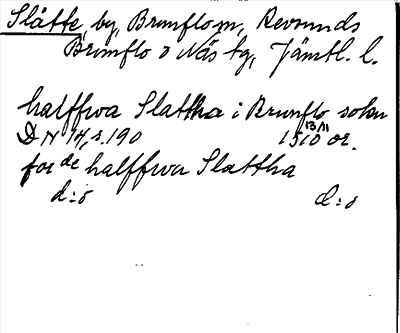 Slätte, by, Brunflo sn, Revsunds
Brunflo o Näs tg, Jämtl. l.
halffwa Slattha i Brunflo sokn
DN 14, s. 190 1510 13/11 or.
for de halffwa Slattha
d:o d:o